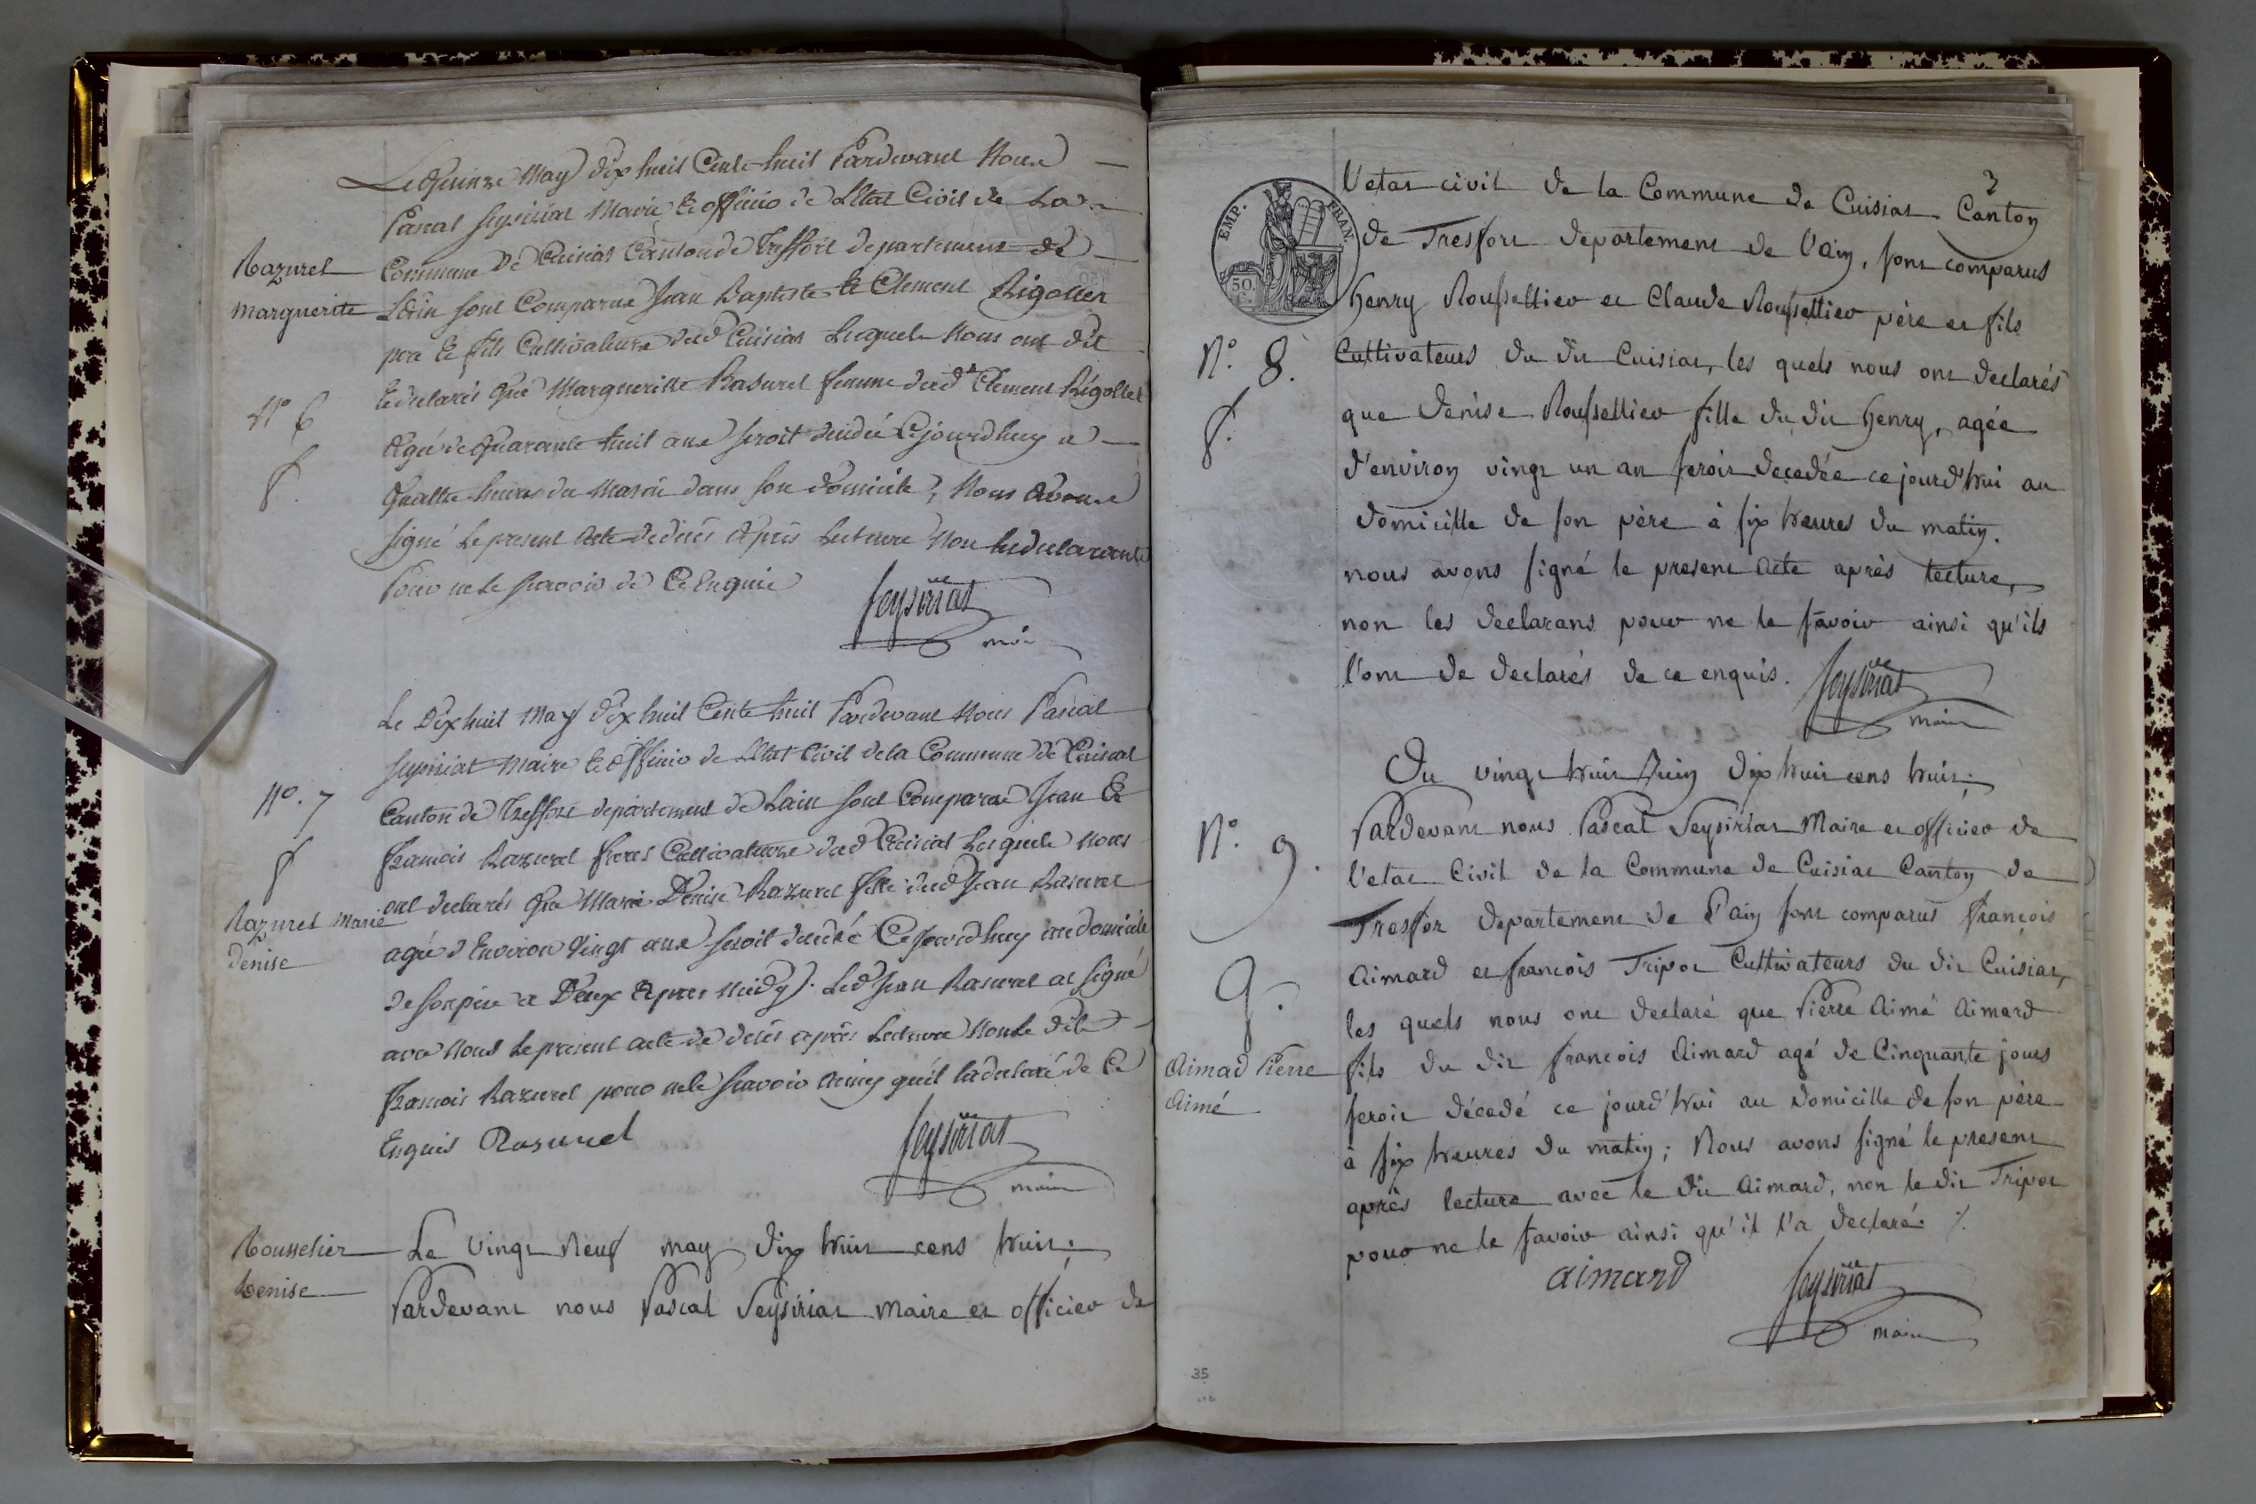 Le Quinze May dix huit Cents huit Pardevant Nous
Pascal Seysiriat Maire Et officier de L'Etat Civil de La
Razurel
Commune de Cuisiat Canton de Treffort departement de
marguerite
L'ain sont Comparue Jean Baptiste & Clement Rigollet
pere et fils Cultivateurs dud Cuisiat Lesquels Nous ont dit
Et declarés Que Margueritte Rasurel femme dud.t Clement Rigollet
N.o 6
Agée de Quarante huit ans seroit decedée Cejourdhuy a
f.
Quattre heures du Matin dans son domicile, Nous Avons
signé Le present Acte de decès Après Lecture Non Les declarants
Pour ne le scavoir de Ce Enquis
Seysiriat
maire
Le Dix huit May dix huit Cents huit Pardevant Nous Pascal
Seysiriat Maire Et officier de L'Etat Civil de la Commune de Cuisiat
N.o. 7
Canton de Treffort departement de Lain sont Comparue Jean Et
f
francois Razurel freres Cultivateurs dud Cuisiat Lesquels Nous
ont declarés Que Marie Denise Razurel fille dud Jean Rasurel
Razurel Marie
denise
agée d'Environ Vingt ans seroit decedé Cejourdhuy au domicile
de son père a Deux Apres midy. Led Jean Rasurel at signé
avec Nous Le present acte de decès après Lecture Non Le dit
francois Razurel pour nele scavoir Ainsy qu'il la declaré de Ce
Enquis Rasurel
Seysiriat
maire
Rousselier
Denise
Le Vingt Neuf may dix huit cens huit;
Pardevant nous Pascal Seysiriat Maire et officier de
3
EMP. FRAN.
50.
L'etat civil de la Commune de Cuisiat Canton
de Tresfort departement de l'ain, sont comparus
henry Roussellier et Claude Roussellier père et fils
N.o 8.
Cultivateurs du dit Cuisiat, les quels nous ont declarés
f.
que denise Roussellier fille du dit henry, agée
d'environ vingt un an seroit decedée ce jourd'hui au
domicille de son père à six heures du matin.
nous avons signé le present acte après lecture,
non les declarans pour ne le savoir ainsi qu'ils
l'ont de declarés de ce enquis.
Seysiriat
maire
Du vingt huit Juin dix huit cens huit;
N.o 9.
Pardevant nous Pascal Seysiriat Maire et officier de
l'etat Civil de la Commune de Cuisiat Canton de
Tresfor departement de l'ain sont comparus françois
aimard et françois Tripot Cultivateurs du dit Cuisiat,
g.
les quels nous ont declaré que Pierre aimé aimard
aimad Pierre
aimé
fils du dit françois aimard agé de Cinquante jours
seroit décedé ce jourd'hui au domicille de son père
à six heures du matin; Nous avons signé le present
après lecture avec le dit aimard, non le dit Tripot
pour ne le savoir ainsi qu'il l'a declaré. /.
aimard
Seysiriat
maire
35